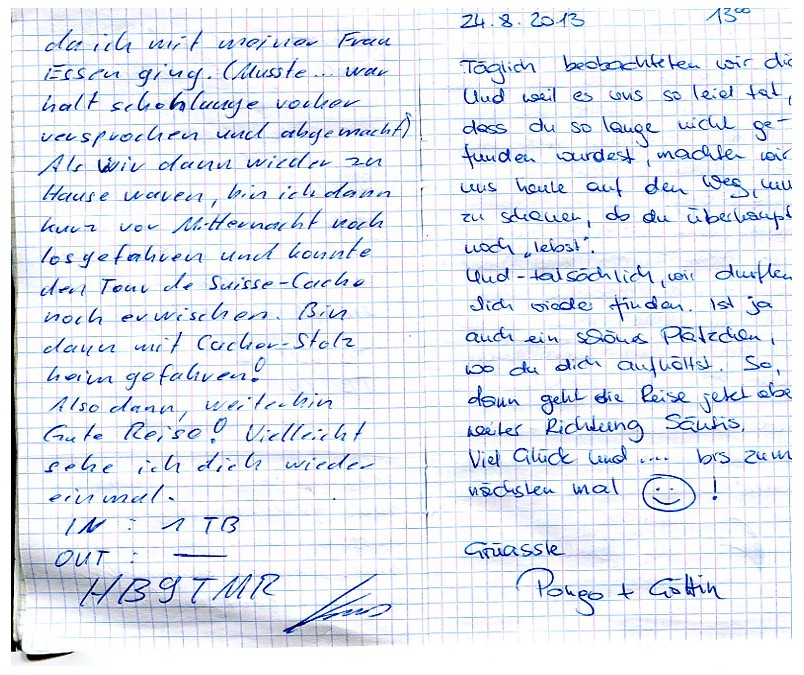 da ich mit meiner Frau
Essen ging. (Musste... war
halt schohlange vorher
versprochen und abgemacht)
Als wir dann wieder zu
Hause waren, bin ich dann
kurz vor Mitternacht noch
losgefahren und konnte
den Tour de Suisse-Cache
noch erwischen. Bin
dann mit Cacher-Stolz
heimgefahren!
Also dann, weiterhin
Gute Reise! Vielleicht
sehe ich dich wieder
einmal.
IN : 1 TB
OUT : —
HB9TMR
24.8.2013 13⁰⁰
Täglich beobachteten wir dic
Und weil es uns so leid tat,
dass du so lange nicht ge-
funden wurdest, machten wir
uns heute auf den Weg, um
zu schauen, ob du überhaupt
noch „lebst".
Und - tatsächlich, wir durften
dich wieder finden. Ist ja
auch ein schönes Plätzchen,
wo du dich aufhältst. So,
dann geht die Reise jetzt abe
weiter Richtung Säntis.
Viel Glück und .... bis zum
nächsten mal !
Grüassle
Pongo + Göttin